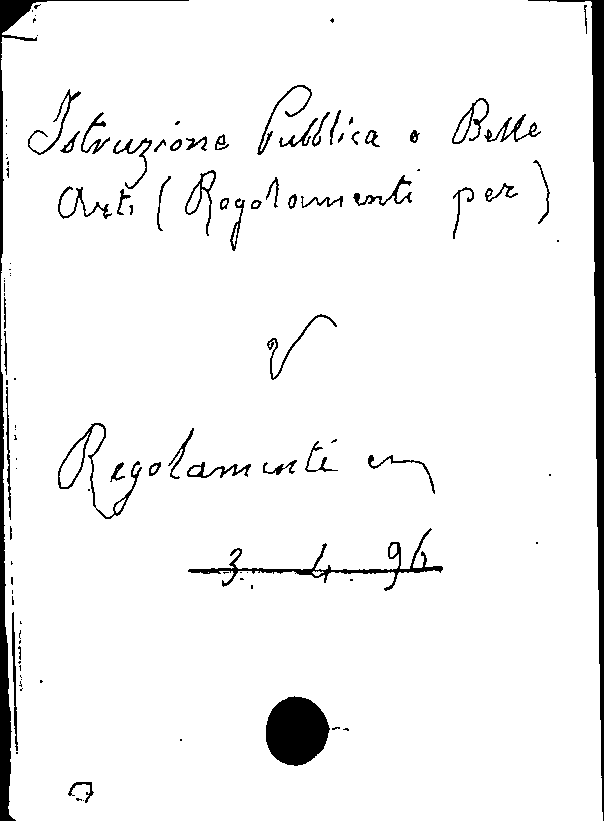 Istruzione Pubblica e Belle
Arti (Regolamenti per)
V
Regolamenti
3. 4. 96